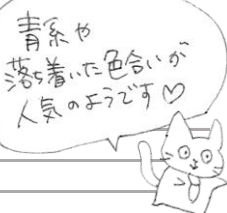 青系や
落ち着いた色合いが
人気のようです♡